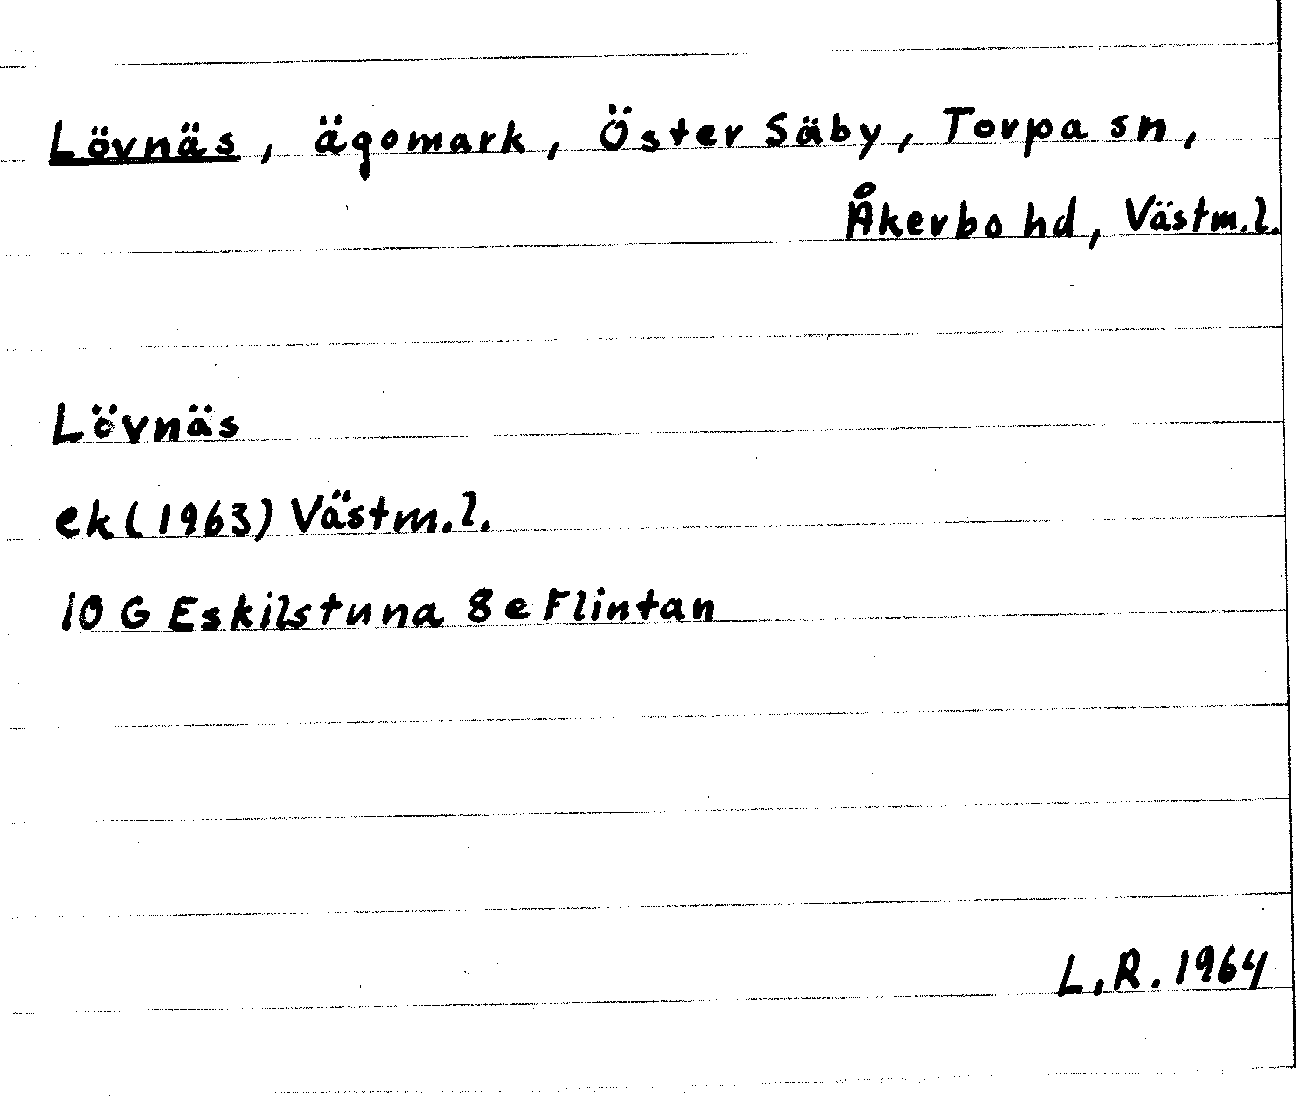 Lövnäs, ägomark, Öster Säby, Torpa sn,
Åkerbo hd, Västm.l.
Lövnäs
ek (1963) Västm.l.
10 G Eskilstuna 8e Flintan
L.R. 1964